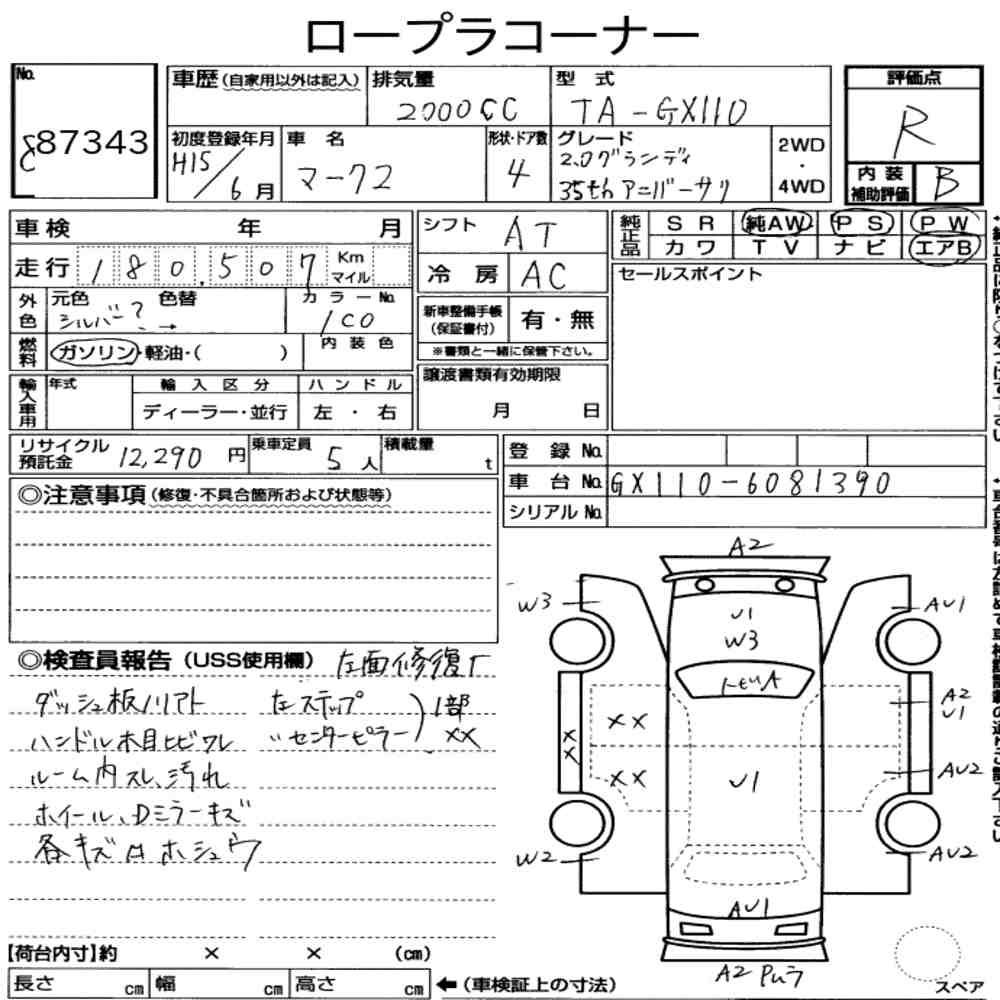 ロープラコーナー
No.
87343
車歴(自家用以外は記入)
排気量
2000CC
型式
TA-GX110
評価点
R
初度登録年月
H15/6月
車名
マーク2
形状・ドア数
4
グレード
2.0グランディ
35thアニバーサリ
2WD
・
4WD
内装
補助評価
B
車検 年 月
走行 180,507 Km
マイル
外色
元色 色替
シルバー? →
カラーNo.
1C0
燃料
ガソリン・軽油・( )
内装色
輸入車用
年式
輸入区分
ディーラー・並行
ハンドル
左・右
シフト AT
冷房 AC
新車整備手帳
(保証書付)
有・無
※書類と一緒に保管下さい。
譲渡書類有効期限
月 日
純正品
SR 純AW PS PW
カワ TV ナビ エアB
セールスポイント
リサイクル
預託金
12,290円
乗車定員
5人
積載量
t
登録No.
車台No. GX110-6081390
シリアルNo.
◎注意事項(修復・不具合箇所および状態等)
◎検査員報告(USS使用欄) 左面修復
ダッシュ板ノリアト 左ステップ
ハンドル木目ヒビワレ 〃センターピラー) 1部XX
ルーム内スレ、汚れ
ホイール、Dミラーキズ
各キズAホシュウ
A2
W3
AU1
U1
W3
トビA
XX
XX
XX
A2
U1
U1
AU2
W2
AU2
AU1
A2 PLラ
スペア
【荷台内寸】約 × × (cm)
長さ cm 幅 cm 高さ cm ←(車検証上の寸法)